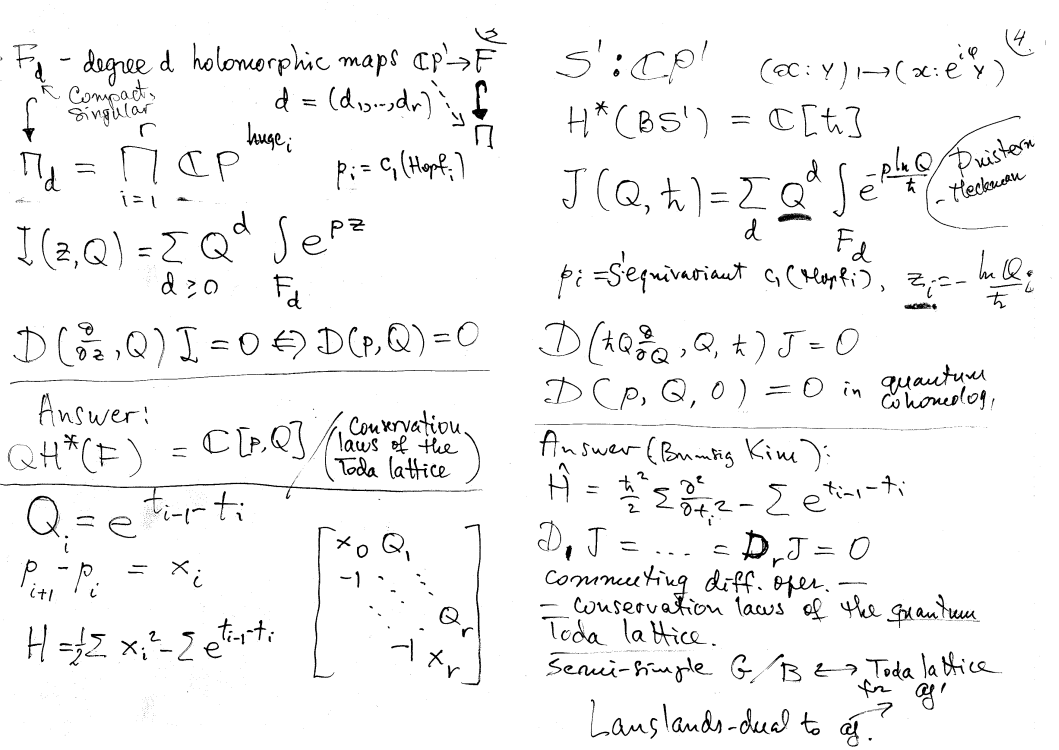 3
F_d - degree d holomorphic maps ℂP¹→F
Compact, singular
d = (d₁,...,d_r)
Π
Π_d = ∏_{i=1}^{r} ℂP^{huge_i}
p_i = c₁(Hopf_i)
I(z,Q) = Σ_{d≥0} Q^d ∫_{F_d} e^{pz}
D(∂/∂z, Q) I = 0 ⇔ D(p,Q) = 0
Answer:
QH*(F) = ℂ[p,Q] / (Conservation laws of the Toda lattice)
Q_i = e^{t_{i-1}-t_i}
p_{i+1} - p_i = x_i
H = ½ Σ x_i² - Σ e^{t_{i-1}-t_i}
x₀ Q₁
-1
Q_r
-1 x_r
4.
S¹ : ℂP¹ (x:y) ↦ (x:e^{iφ}y)
H*(BS¹) = ℂ[ħ]
J(Q,ħ) = Σ_d Q^d ∫_{F_d} e^{-p ln Q/ħ}
-Heckman
p_i = S¹equivariant c₁(Hopf_i), z_i = - ln Q_i/ħ
D(ħQ ∂/∂Q, Q, ħ) J = 0
D(p, Q, 0) = 0 in quantum cohomolog,
Answer (Bumsig Kim):
Ĥ = ħ²/2 Σ ∂²/∂t_i² - Σ e^{t_{i-1}-t_i}
D₁ J = ... = D_r J = 0
Commuting diff. oper. —
— conservation laws of the quantum
Toda lattice.
Semi-simple G/B ↔ Toda lattice
for 𝔤'
Langlands-dual to 𝔤.